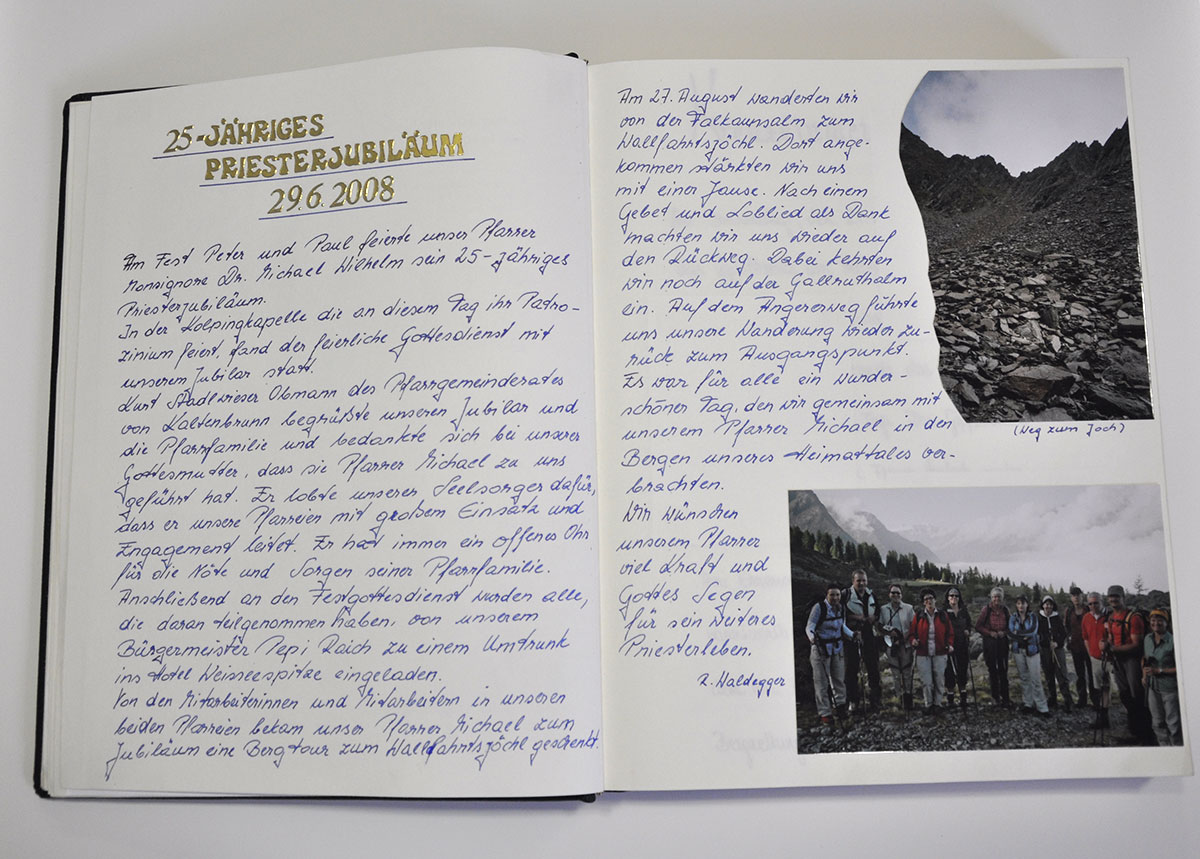 25-JÄHRIGES
PRIESTERJUBILÄUM
29.6.2008
Am Fest Peter und Paul feierte unser Pfarrer
Monsignore Dr. Michael Wilhelm sein 25-jähriges
Priesterjubiläum.
In der Kolpingkapelle die an diesem Tag ihr Patro-
zinium feiert, fand der feierliche Gottesdienst mit
unserem Jubilar statt.
Kurt Stadlwieser Obmann des Pfarrgemeinderates
von Kaltenbrunn begrüßte unseren Jubilar und
die Pfarrfamilie und bedankte sich bei unserer
Gottesmutter, dass sie Pfarrer Michael zu uns
geführt hat. Er lobte unseren Seelsorger dafür,
dass er unsere Pfarreien mit großem Einsatz und
Engagement leitet. Er hat immer ein offenes Ohr
für die Nöte und Sorgen seiner Pfarrfamilie.
Anschließend an den Festgottesdienst wurden alle,
die daran teilgenommen haben, von unserem
Bürgermeister Pepi Raich zu einem Umtrunk
ins Hotel Weisseespitze eingeladen.
Von den Mitarbeiterinnen und Mitarbeitern in unseren
beiden Pfarreien bekam unser Pfarrer Michael zum
Jubiläum eine Bergtour zum Wallfahrtsjöchl geschenkt.
Am 27. August wanderten wir
von der Falkaunsalm zum
Wallfahrtsjöchl. Dort ange-
kommen stärkten wir uns
mit einer Jause. Nach einem
Gebet und Loblied als Dank
machten wir uns wieder auf
den Rückweg. Dabei kehrten
wir noch auf der Gallruthalm
ein. Auf dem Angererweg führte
uns unsere Wanderung wieder zu-
rück zum Ausgangspunkt.
Es war für alle ein wunder-
schöner Tag, den wir gemeinsam mit
unserem Pfarrer Michael in den
Bergen unseres Heimattales ver-
brachten.
(Weg zum Joch)
Wir wünschen
unserem Pfarrer
viel Kraft und
Gottes Segen
für sein weiteres
Priesterleben.
R. Waldegger